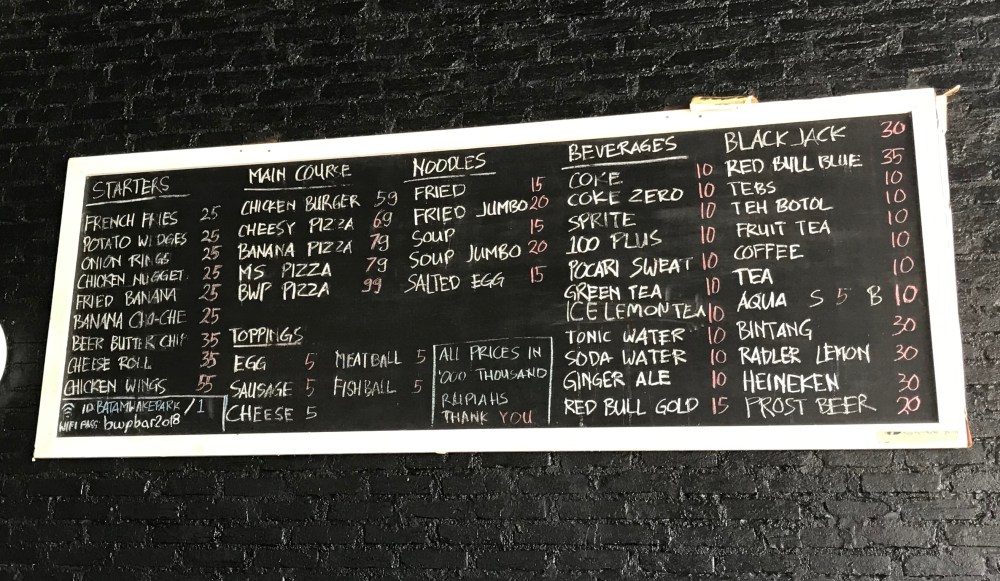 STARTERS
FRENCH FRIES 25
POTATO WEDGES 25
ONION RINGS 25
CHICKEN NUGGET 25
FRIED BANANA 25
BANANA CHO-CHE 25
BEER BUTTER CHIP 35
CHEESE ROLL 35
CHICKEN WINGS 55
ID: BATAMWAKEPARK /1
WIFI PASS: bwpbar2018
MAIN COURCE
CHICKEN BURGER 59
CHEESY PIZZA 69
BANANA PIZZA 79
MS PIZZA 79
BWP PIZZA 99
TOPPINGS
EGG 5 MEATBALL 5
SAUSAGE 5 FISHBALL 5
CHEESE 5
NOODLES
FRIED 15
FRIED JUMBO 20
SOUP 15
SOUP JUMBO 20
SALTED EGG 15
ALL PRICES IN
'000 THOUSAND
RUPIAHS
THANK YOU
BEVERAGES
COKE 10
COKE ZERO 10
SPRITE 10
100 PLUS 10
POCARI SWEAT 10
GREEN TEA 10
ICE LEMON TEA 10
TONIC WATER 10
SODA WATER 10
GINGER ALE 10
RED BULL GOLD 15
BLACK JACK 30
RED BULL BLUE 35
TEBS 10
TEH BOTOL 10
FRUIT TEA 10
COFFEE 10
TEA 10
AQUA S 5 B 10
BINTANG 30
RADLER LEMON 30
HEINEKEN 30
PROST BEER 20